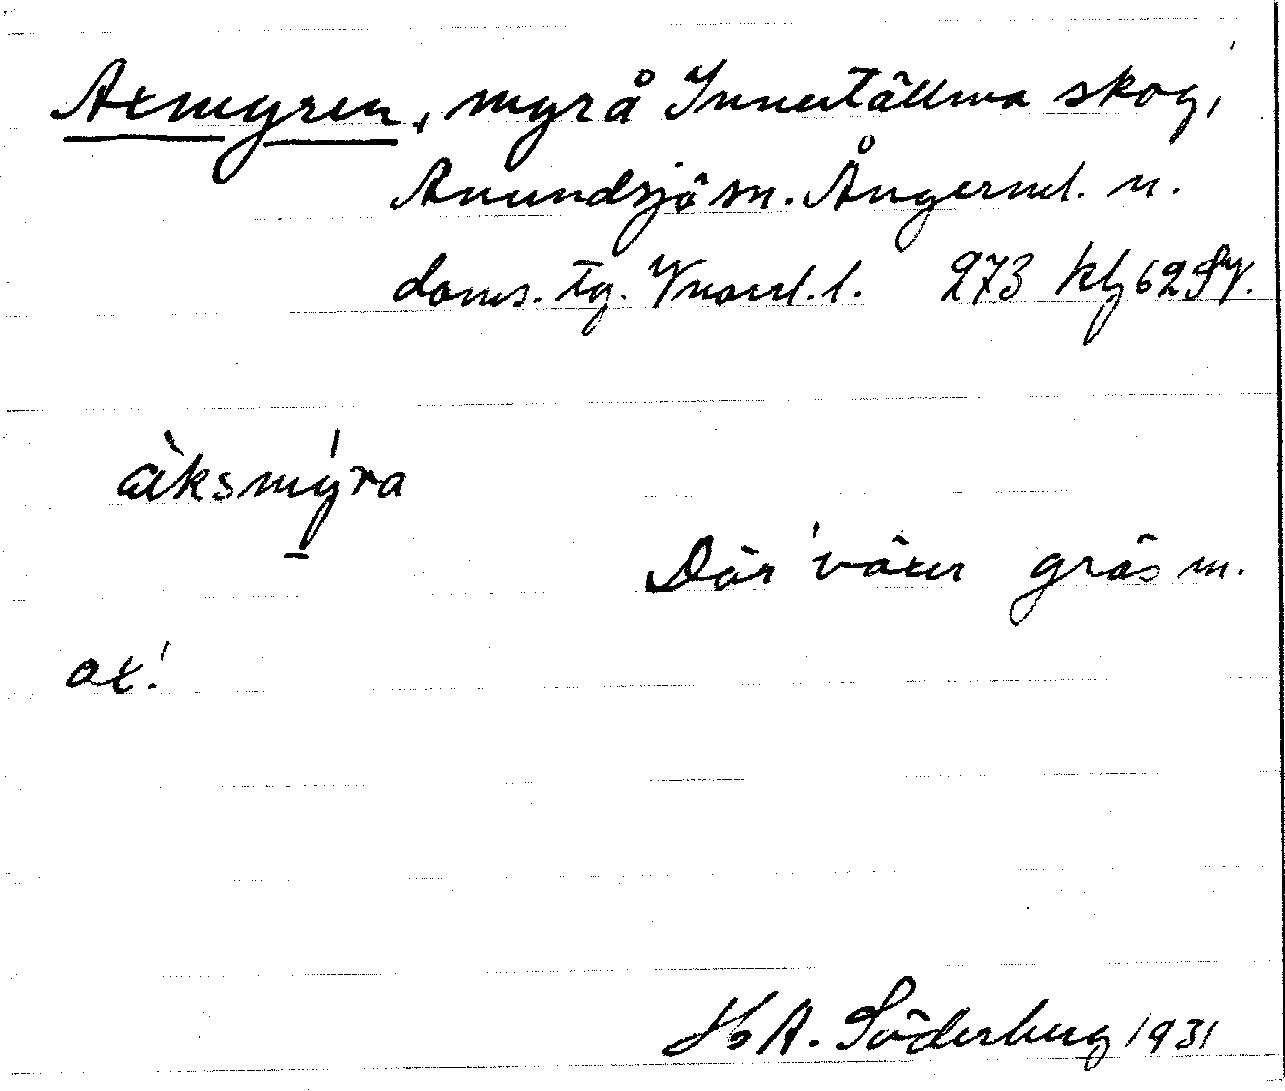 Axmyren, myr å Innertällma skog,
Anundsjö sn. Ångerml. n.
doms. tg. Vnorrl. l. 273 Kbg 62 SV.
àksmýra
Där växer gräs m.
ax!
H A. Söderberg 1931